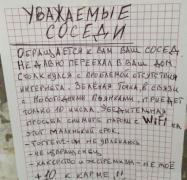 УВАЖАЕМЫЕ
СОСЕДИ
ОБРАЩАЕТСЯ К ВАМ ВАШ СОСЕД
НЕДАВНО ПЕРЕЕХАЛ В ВАШ ДОМ.
СТОЛКНУЛСЯ С ПРОБЛЕМОЙ ОТСУТСТВИЯ
ИНТЕРНЕТА. ЗЕЛЁНАЯ ТОЧКА, В СВЯЗИ
С НОВОГОДНИМИ ПЬЯНКАМИ, ПРИЕДЕТ
ТОЛЬКО 10 ЧИСЛА. УБЕДИТЕЛЬНАЯ
ПРОСЬБА СКИНУТЬ ПАРОЛЬ С WiFi НА
ЭТОТ МАЛЕНЬКИЙ СРОК.
- ТОРРЕНТОМ НЕ УВЛЕКАЮСЬ
- НЕ ИЗВРАЩЕНЕЦ
- ХАКЕРСТВО И ЭКСТРЕМИЗМ - НЕ МОЁ
+10 К КАРМЕ !!!